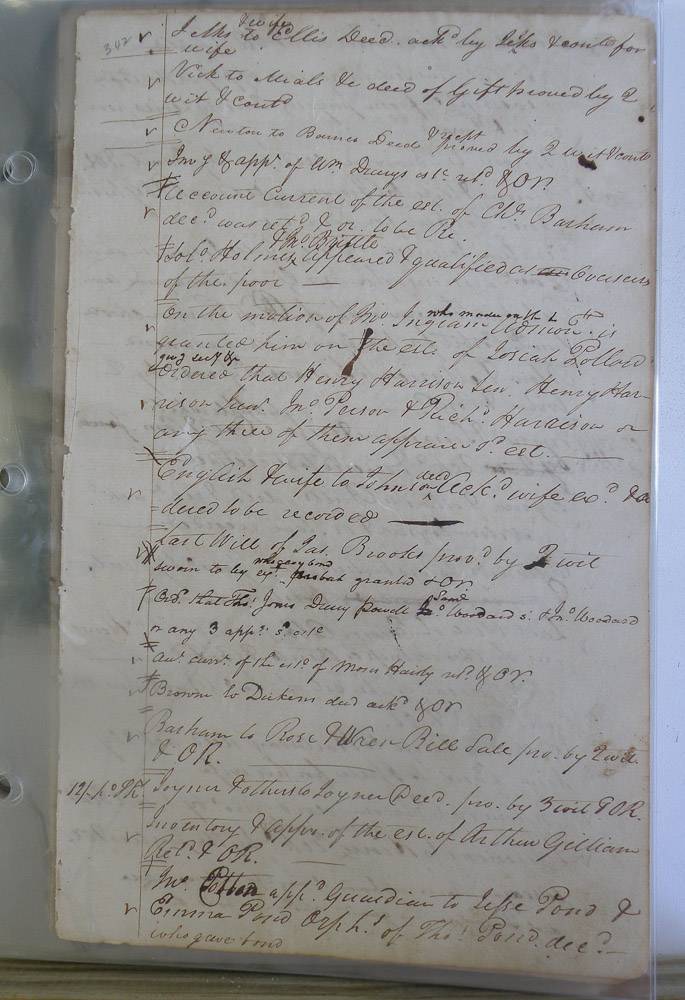 342
& wife
to Ellis Deed. ackd by & contd for
wife
Vick to Mials &c deed of Gift proved by 2
wit & contd
Newton to Barnes Deed & proved by 2 wit & contd
Invy & appt. of Wm. Daurys est. retd. & OR
Account Current of the est. of Chs. Barham
decd. was retd. & or. to be Re.
& Bittle
Holmes appeared & qualified as Overseers
of the poor
On the motion of Jno. Ingram who made oath &c Admon. is
granted him on the est. of Josiah Pollard
giving secy &c
Ordered that Henry Harrison Sen. Henry Har-
rison Junr. Jno. Person & Richd. Harrison or
any three of them appraise sd. est.
English & wife to Johnson deed Ackd. wife exd. & or
dered to be recorded
Last Will of Jas. Brooks provd. by 2 wit
sworn to by exr. who gave bond Probat granted & OR
Ord. that Ths. Jones Davy Powell Saml. Woodard & Jno. Woodard
or any 3 appr. s. este
curr. of the este. of Moses Hardy retd. & OR.
Browne to Dickens deed ackd & OR
Barham to Rose & Wrer Bill Sale pro. by 2 wit.
& OR.
Joyner & others to Joyner Deed. pro. by 3 wit & OR.
Inventory & appr. of the est. of Arthur Gilliam
Retd. & OR.
Jno. Cotten appd. Guardian to Jesse Pond &
Emma Pond Orphs. of Ths. Pond decd.
who gave bond